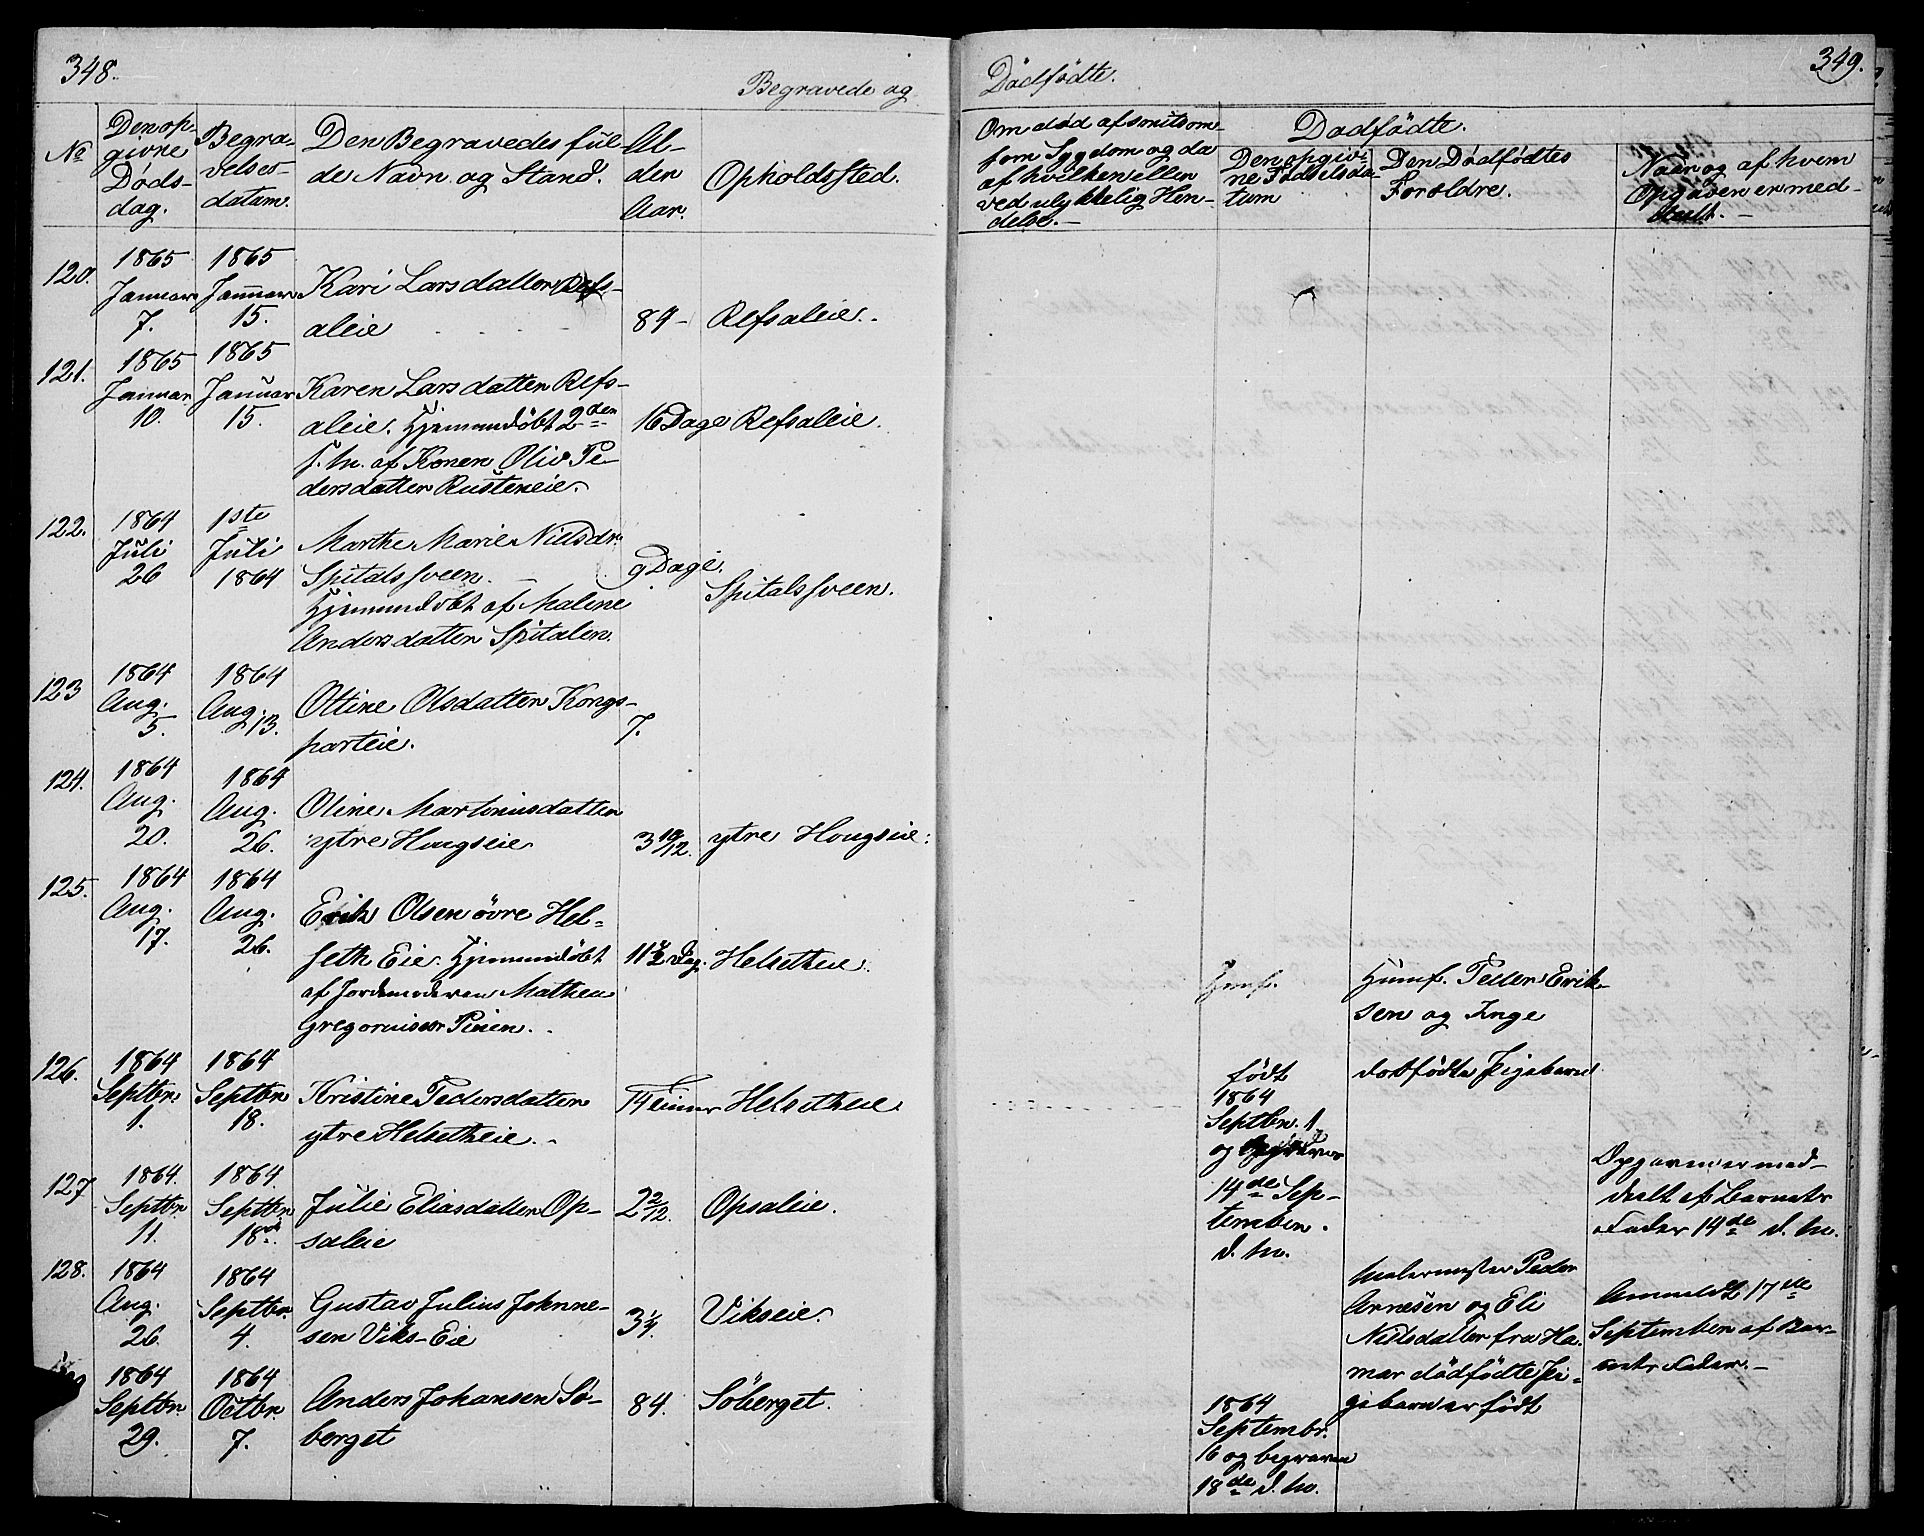 348.
Begravede og
No
Den op-
givne
Døds-
dag.
Begra-
velses-
datum.
Den Begravedes ful-
de Navn og Stand.
Al-
der
Aar.
Opholdssted.
120.
1865
Januar
7.
1865
Januar
15.
Kari Larsdatter Refs-
aleie
84 -
Refsaleie.
121.
1865
Januar
10.
1865
Januar
15.
Karen Larsdatter Refs-
aleie. Hjemmedöbt 2den
f. M. af Konen Oliv Pe-
dersdatter Rusteneie.
16 Dage
Refsaleie.
122.
1864
Juli
26
1ste
Juli
1864
Marthe Marie Nielsdr.
Spitalssveen.
Hjemmedöbt af Malene
Andersdatter Spitalen.
9 Dage.
Spitalssveen.
123
1864
Aug.
5.
1864
Aug. 13.
Oltine Olsdatter Kongs-
parteie.
7.
124.
1864
Aug.
20.
1864
Aug.
26.
Oline Martinusdatter
ytre Hougseie
3 10/12.
ytre Hougseie.
125.
1864
Aug.
17.
1864
Aug.
26.
Erik Olsen övre Hel-
seth Eie. Hjemmedöbt
af Jordemoderen Mathea
11 1/2 Dag.
Helsetheie.
126.
1864
Septbr.
1.
1864
Septbr
18.
Kristine Pedersdatter
ytre Helsetheie.
Helsetheie
127
1864.
Septbr.
11.
1864.
Septbr
18de
Julie Eliasdatter Op-
saleie
2 2/12.
Opsaleie.
128.
1864
Aug.
26.
1864
Septbr.
4.
Gustav Julius Johnne-
sen Viks-Eie
3/4.
Vikseie.
1864
Septbr.
29.
1864
Octbr.
7.
Anders Johansen Sö-
berget
84.
Söberget.
Dödfödte.
349.
Om død af smitsom-
som Sygdom og da
af hvilken eller
ved ulykkelig Hen-
delse.-
Dødfödte.
Den opgiv-
ne Fødselsda-
tum
Den Dødfödtes
Forældre.
Naar og af hvem
Opgaven er med-
deelt.-
Humf. Peder Erik-
sen og Inge
dødfödte Pigebarn
födt
1864
Septbr. 1
og begraven
14de Sep-
tember.
d. M.
Opgaven er med-
deelt af Barnets
Fader 14de d. M.
Malermester Peder
Arnesen og Eli
Nielsdatter fra Ha-
mar dödfödte Pi-
gebarn er födt
1864
Septembr.
16 og begraven
18de d. M.
Anmeldt 17de
September af Bar-
nets Fader.-